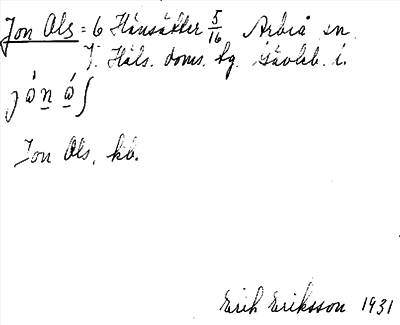 Jon Ols = 6 Hånsätter 5/16 Arbrå sn
V. Häls. doms. hg. Gävleb. l.
Jon Ols, kb.
Erik Eriksson 1931